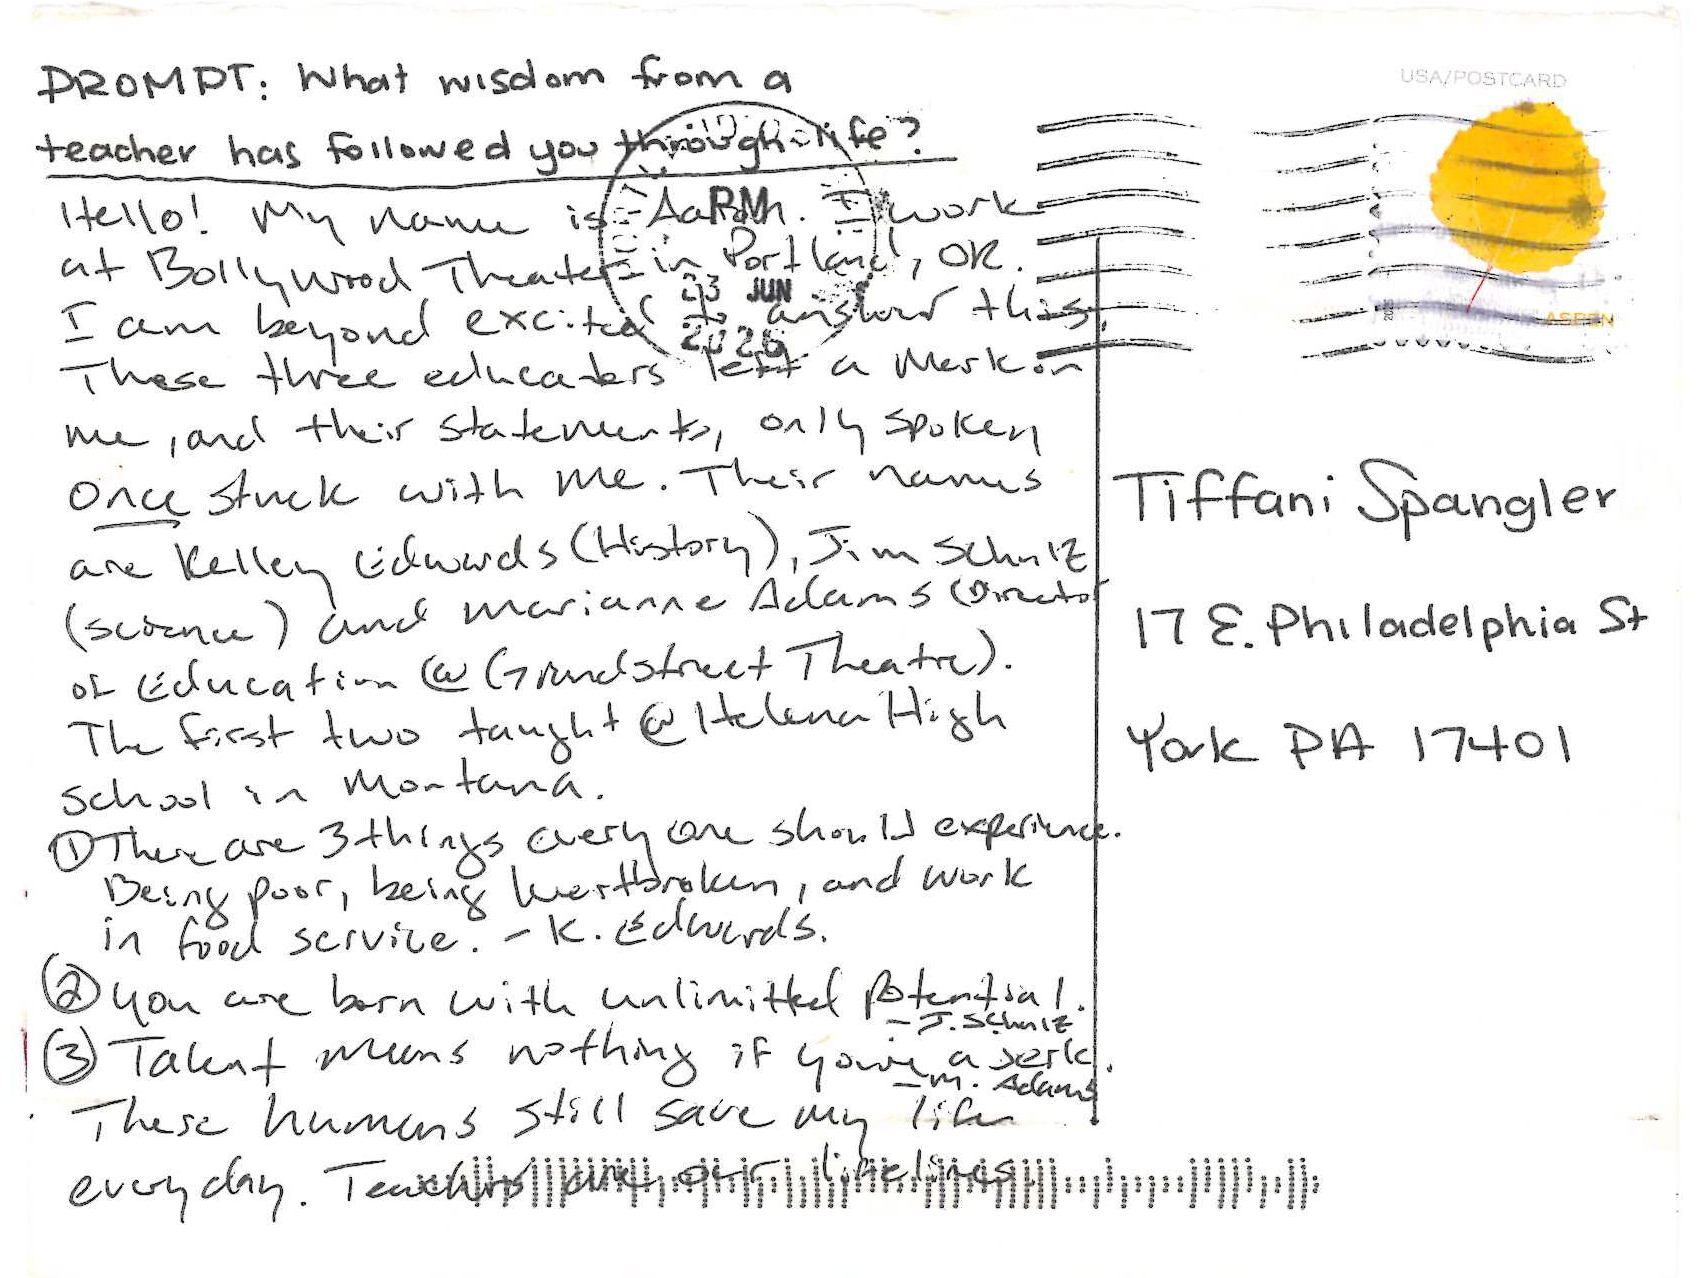 PROMPT: What wisdom from a
teacher has followed you through life?
Hello! My name is Aaron. I work
at Bollywood Theater in Portland, OR.
I am beyond excited to answer this.
These three educators left a Mark on
me, and their statements, only spoken
once stuck with me. Their names
are Kelley Edwards (History), Jim Schulz
(science) and Marianne Adams (Director
of Education @ Grandstreet Theatre).
The first two taught @ Helena High
school in Montana.
① There are 3 things everyone should experience.
Being poor, being heartbroken, and work
in food service. - K. Edwards.
② You are born with unlimitted potential.
- J. Schulz
③ Talent means nothing if you're a jerk.
- M. Adams
These humans still save my life
everyday. Teachers are our lifelines.
USA/POSTCARD
PM
23 JUN
2026
ASPEN
Tiffani Spangler
17 E. Philadelphia St
York PA 17401